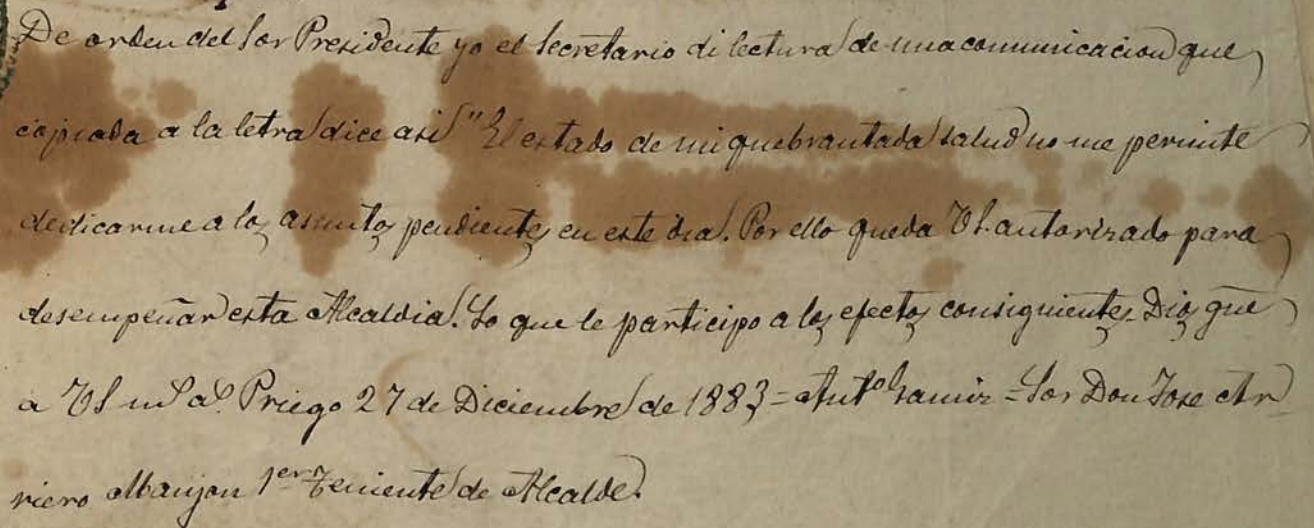 De orden del Sor Presidente yo el Secretario di lectura de una comunicacion que
copiada a la letra dice asi "El estado de mi quebrantada salud no me permite
dedicarme a los asuntos pendientes en este dia. Por ello queda VS. autorizado para
desempeñar esta Alcaldia. Lo que le participo a los efectos consiguientes. Dios gue
a VS ms as. Priego 27 de Diciembre de 1883 = Anto = Sor Don Jose Ar
riero Manjon 1er Teniente de Alcalde.